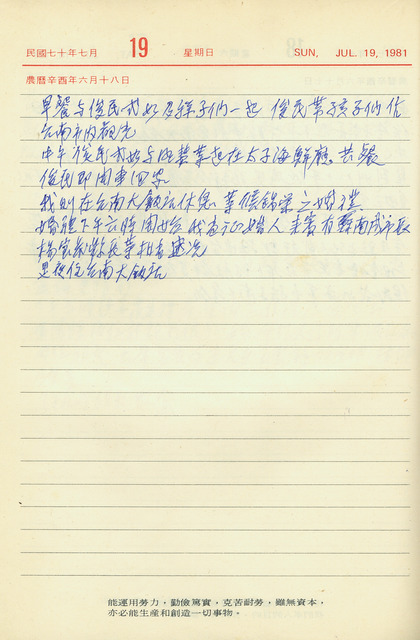 民國七十年七月 19 星期日 SUN, JUL. 19, 1981
農曆辛酉年六月十八日
早餐與俊民我如及孫子們一起 俊民帶孩子們在
台南市內觀光
中午俊民 與 葉 在太子海鮮廳共餐
俊民即開車回家
我則在台南大飯店休息 等候 之婚禮
婚禮下午六時開始 我為證婚人 來賓有蘇南成市長
楊 校長等相當盛況
是夜住台南大飯店
能運用勞力，勤儉篤實，克苦耐勞，雖無資本，
亦必能生產和創造一切事物。